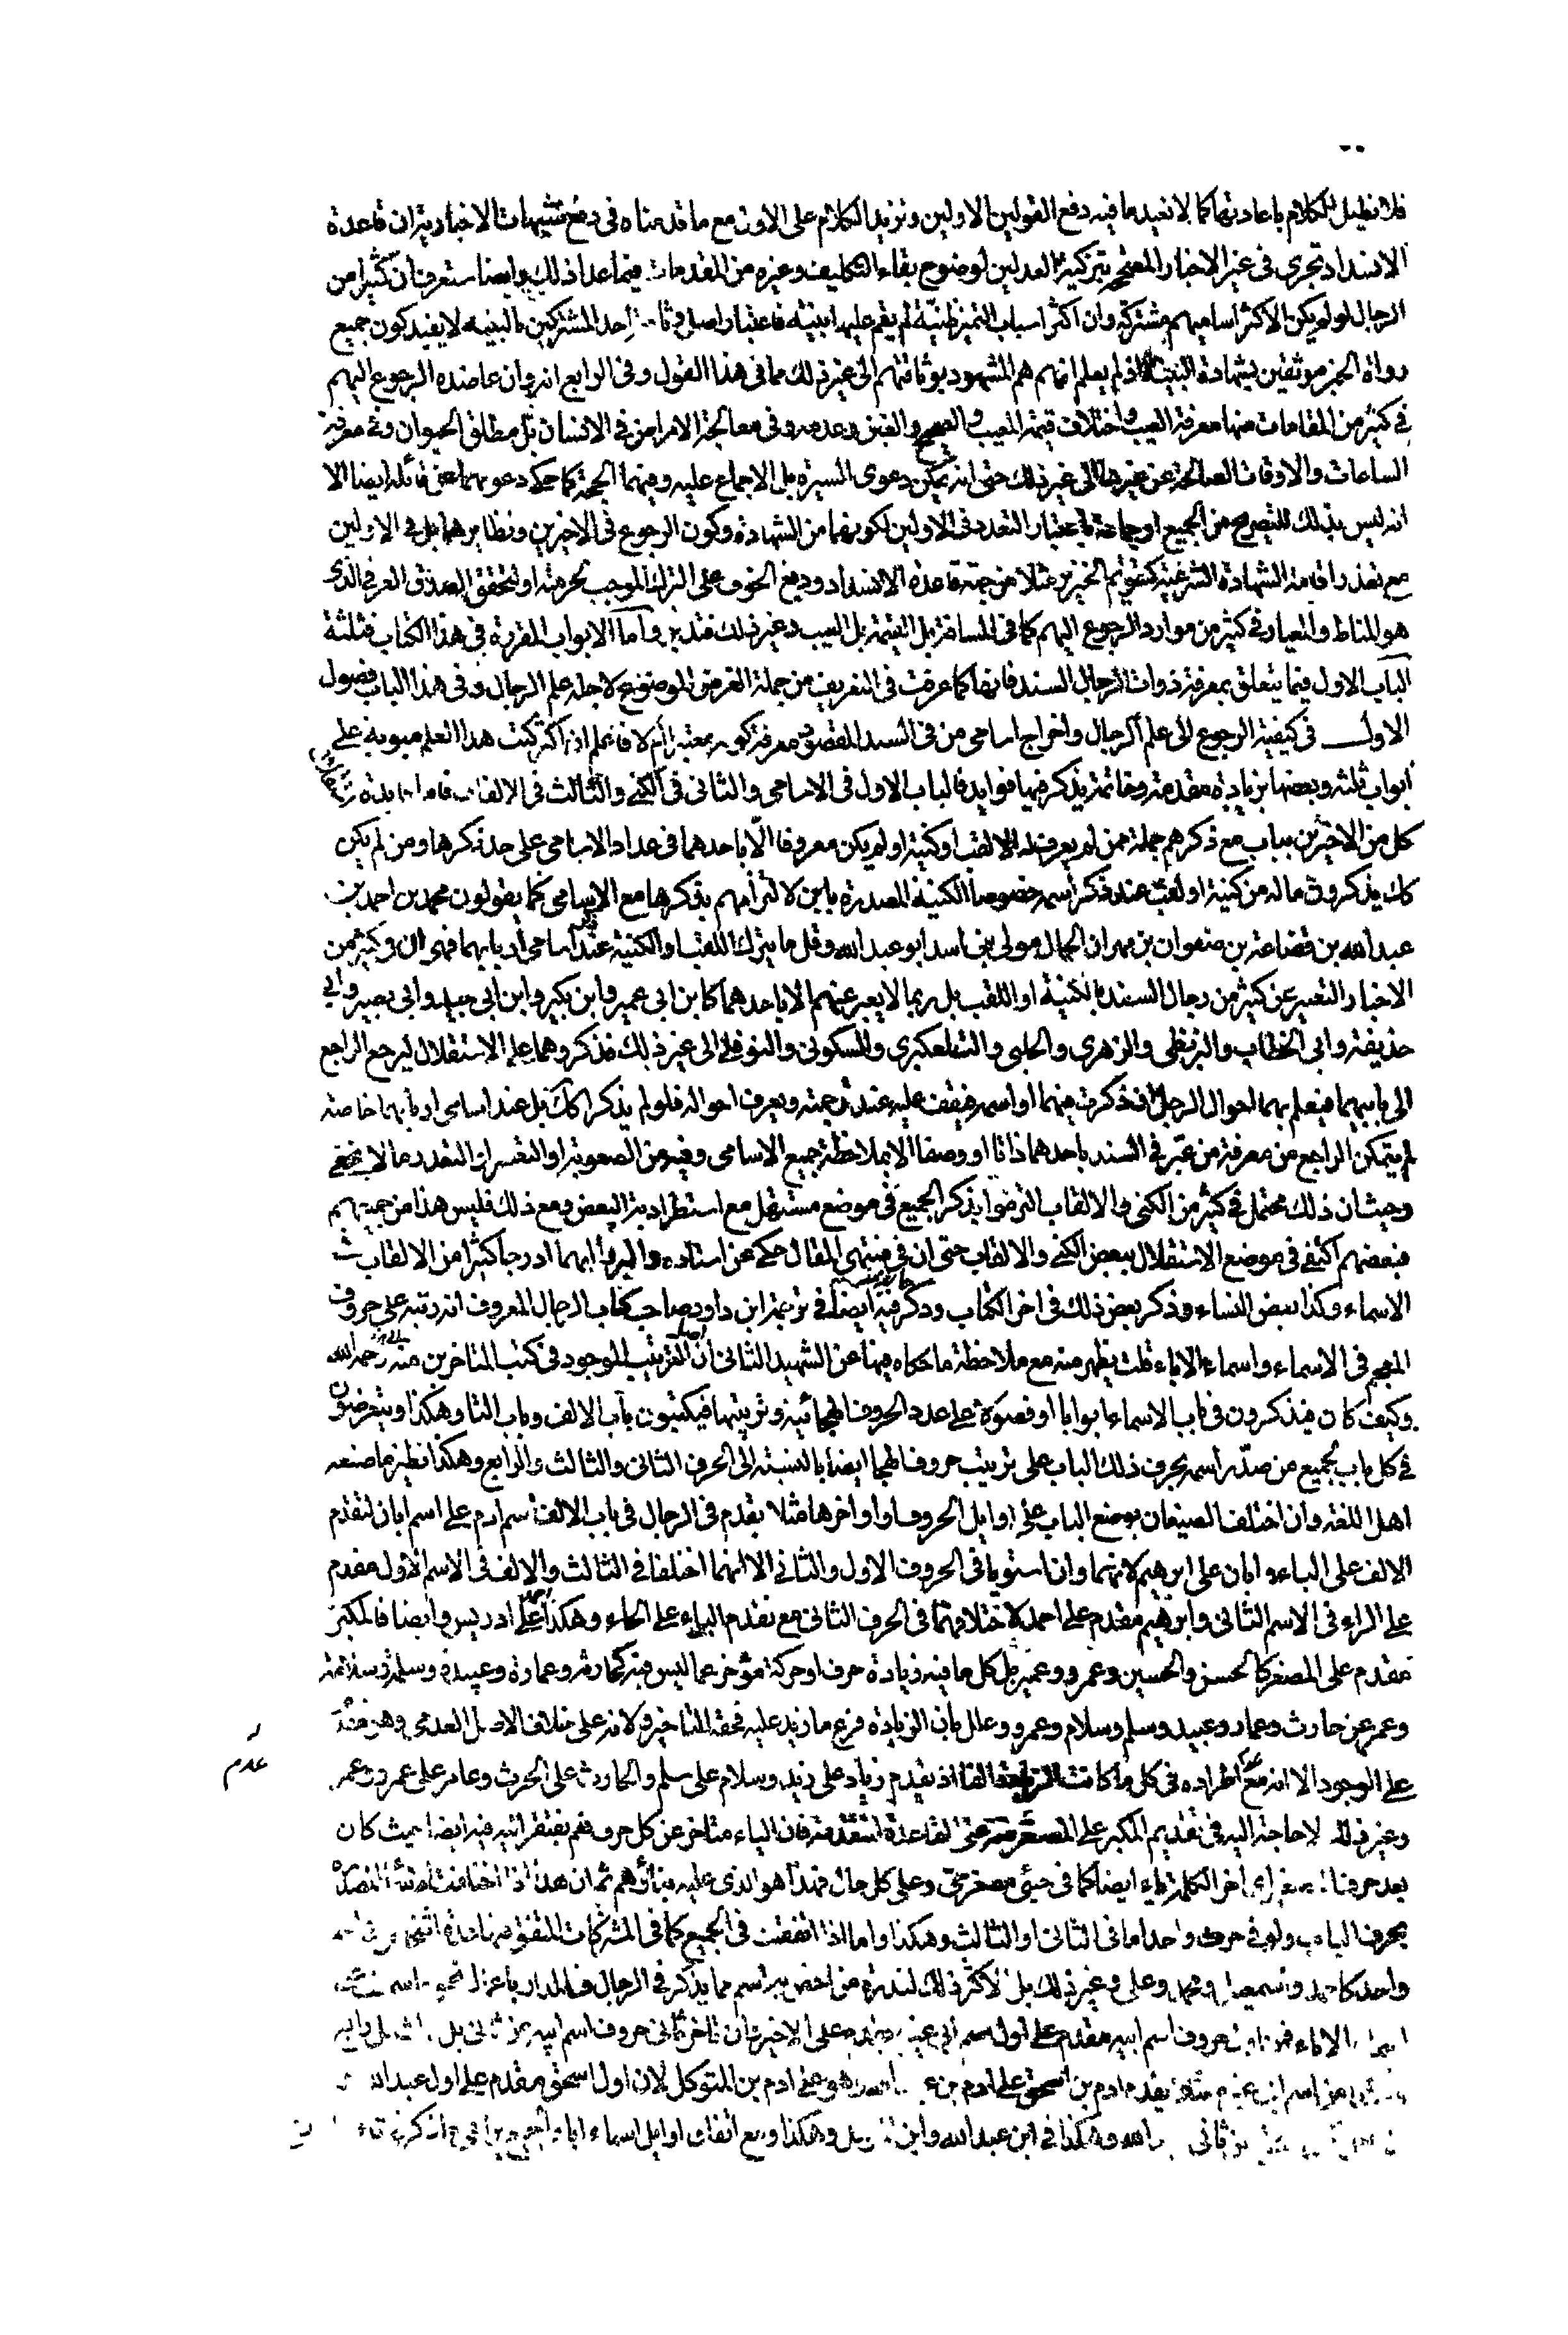 فلا نطيل الكلام باعادتها كما لا نعيد ما فيه دفع القولين الاولين ونزيد الكلام على الاول مع ما قدمناه في دفع شبهات الاخبارية ان قاعدة
الانسداد تجري في غير الاخبار المصححة بتزكية العدلين لوضوح بقاء التكليف وغيره من المقدمات فيما عدا ذلك وايضا ستعرف ان كثيرا من
الرجال لو لم يكن الاكثر اساميهم مشتركة وان اكثر اسباب التميز ظنية لم يقم عليها بينة فاعتبار اصل احد المشتركين بالبينة لا يفيد كون جميع
رواة الخبر موثقين بشهادة البينة اذ لم يعلم انهم هم المشهود بوثاقتهم الى غير ذلك مما في هذا القول وفي الرابع انه وان عاضده الرجوع اليهم
في كثير من المقامات منها معرفة العيب واختلاف قيمة المعيب والصحيح والغبن وعدمه وفي معالجة الامراض في الانسان بل مطلق الحيوان وفي معرفة
الساعات والاوقات الصالحة عن غيرها الى غير ذلك حتى انه يمكن دعوى السيرة بل الاجماع عليه وفيهما الحجة كما حكى دعويهما عن قائله ايضا الا
انه ليس بذلك لتصريح من الجميع او جماعة باعتبار التعدد في الاولين لكونهما من الشهادة وكون الرجوع في الاخيرين ونظايرهما بل في الاولين
مع تعذر اقامة الشهادة الشرعية كتقويم الخبير مثلا من جهة قاعدة الانسداد ودفع الخوف على الترك الموجب لحرمته او لتحقق الصدق العرفي الذي
هو المناط والمعيار في كثير من موارد الرجوع اليهم كما في المسافة بل القيمة بل العيب وغير ذلك فتدبر واما الابواب المقررة في هذا الكتاب فثلثة
الباب الاول فيما يتعلق بمعرفة ذوات الرجال السند فانها كما عرفت في التعريف من جملة الغرض الموضوع لاجله علم الرجال وفي هذا الباب فصول
الاول في كيفية الرجوع الى علم الرجال واخراج اسامي من في السند المقصود معرفة كونه معتبرا ام لا فاعلم ان اكثر كتب هذا العلم مبوبة على
ابواب ثلثة وبعضها بزيادة مقدمة وخاتمة يذكر فيها فوايد فالباب الاول في الاسامي والثاني في الكنى والثالث في الالقاب
كل من الاخيرين بباب مع ذكرهم جملة ممن لم يعرف له الا لقب او كنية او لم يكن معروفا الا باحدهما في عداد الاسامي على حد ذكرها ومن لم يكن
كك يذكرون ما له من كنية او لقب عند ذكر اسمه خصوصا الكنية المصدرة بابن لالتزامهم بذكرها مع الاسامي كما يقولون محمد بن احمد بن
عبد الله بن قضاعة بن صفوان بن مهران الجمال مولى بني اسد ابو عبد الله وقل ما يترك اللقب او الكنية عند اسامي اربابهما فهو ان وكثير من
الاخبار التعبير عن كثير من رجال السند بالكنية او اللقب بل ربما لا يعبر عنهم الا باحدهما كابن ابي عمير وابن بكير وابن ابي جيد وابي بصير وابي
حذيفة وابي الخطاب والبزنطي والزهري والحلبي والتلعكبري والسكوني والنوفلي الى غير ذلك فذكروهما على الاستقلال ليرجع الراجع
الى بابيهما فيعلم بهما احوال الرجل ان ذكرت فيهما او اسمه فيقف عليه عند ترجمته ويعرف احواله فلو لم يذكرا كك بل عند اسامي اربابهما خاصة
لم يتمكن الراجع من معرفة من عبر في السند باحدهما ذاتا او وصفا الا بملاحظة جميع الاسامي وفيه من الصعوبة او التعسر او التعذر ما لا يخفى
وحيث ان ذلك محتمل في كثير من الكنى والالقاب التزموا بذكر الجميع في موضع مستقل مع استطرادية البعض ومع ذلك فليس هذا من جميعهم
فبعضهم اكتفى في موضع الاستقلال ببعض الكنى والالقاب حتى ان في منتهى المقال حكى عن استاده والميرزا انهما ادرجا كثيرا من الالقاب في
الاسماء وكذا بعض النساء وذكر بعض ذلك في اخر الكتاب وذكر فيه ايضا في ترجمة ابن داود صاحب كتاب الرجال المعروف انه رتبه على حروف
المعجم في الاسماء واسماء الاباء قلت يظهر منه مع ملاحظة ما حكاه فيها عن الشهيد الثاني ان اصل الترتيب الموجود في كتب المتاخرين منه رحمه الله
وكيف كان فيذكرون في باب الاسماء ابوابا او فصولا على عدد الحروف الهجائية وترتيبها فيكتبون باب الالف وباب البا وهكذا ويتعرضون
في كل باب لجميع من صدر اسمه بحرف ذلك الباب على ترتيب حروف الهجا ايضا بالنسبة الى الحرف الثاني والثالث والرابع وهكذا نظير ما صنعه
اهل اللغة وان اختلف الصنيعان بوضع الباب على اوايل الحروف او اواخرها مثلا يقدم في الرجال في باب الالف اسم ادم على اسم ابان لتقدم
الالف على الباء وابان على ابرهيم لانهما وان استويا في الحروف الاول والثاني الا انهما اختلفا في الثالث والالف في الاسم الاول مقدم
على الراء في الاسم الثاني وابرهيم مقدم على احمد لاختلافهما في الحرف الثاني مع تقدم الباء على الحاء وهكذا احمد على ادريس وايضا فالمكبر
مقدم على المصغر كالحسن والحسين وعمر وعمير بل كل ما فيه زيادة حرف او حركة مؤخر عما ليس فيه كحارثة وعمارة وعبيدة وسلمة وسلامة
وعمر عن حارث وعمار وعبيد وسلم وسلام وعمرو وعلل بان الزيادة فرع ما زيد عليه فحقه التاخير ولانه على خلاف الاصل العدمي وهو مقدم
على الوجود الا انه مع عدم اطراده في كل ما كانت الزيادة الفا اذ يقدم زياد على زيد وسلام على سلم والحارث على الحرث وعامر على عمرو وعمر
وغير ذلك لا حاجة اليه في تقديم المكبر على المصغر القاعدة المتقدمة فان الياء متاخر عن كل حرف نعم يفتقر اليه فيه ايضا حيث كان
بعد حرف اخر الكلمة ياء ايضا كما في حيي مصغر حي وعلى كل حال فهذا هو الذي عليه بناؤهم ثم ان هذا اذا اختلفت
بحرف الباب ولو في حرف واحد اما في الثاني او الثالث وهكذا واما اذا اتفقت في الجميع كما في المشتركات
واحد كاحمد واسمعيل ومحمد وعلى وغير ذلك بل الاكثر ذلك لندرة من اختص باسم مما يذكر في الرجال فالمدار
الاباء فمن اول حروف اسم ابيه مقدم على اول اسم ابي غيره مقدم على الاخير وان تاخر ثاني حروف اسم ابيه عن ثاني بل
عن اسم ابي غيره مثلا يقدم ادم بن اسحق على ادم بن هو على ادم بن المتوكل لان اول اسحق مقدم على اول عبد الله
الله وهكذا في ابن عبد الله وابن وهكذا ومع اتفاق اوايل اسماء اباء
عدم